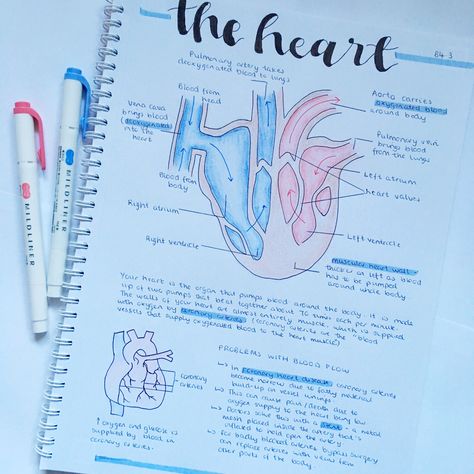 the heart
B4 3
Pulmonary artery takes
deoxygenated blood to lungs
Blood from
head
Aorta carries
oxygenated blood
around body
Vena cava
brings blood
deoxygenated
into the
heart
Pulmonary vein
brings blood
from the lungs
Left atrium
heart valves
Blood from
body
Right atrium
Left ventricle
Right ventricle
muscular heart wall -
thicker on left as blood
had to be pumped
around whole body
Your heart is the organ that pumps blood around the body. it is made
up of two pumps that beat together about 70 times each per minute.
The walls of your heart are almost entirely muscle, which is supplied
with oxygen by coronary arteries (coronary arteries are the blood
vessels that supply oxygenated blood to the heart muscle)
PROBLEMS WITH BLOOD FLOW
coronary
arteries
↑ oxygen and glucose is
supplied by blood in
coronary arteries.
↳ In coronary heart disease, coronary arteries
become narrow due to fatty material
build-up on vessel linings
↳ This can cause pain/death due to
oxygen supply to the heart being low
↳ Doctors solve this with a stent - a metal
mesh placed inside the artery that's
inflated to hold open the artery
↳ For badly blocked arteries, bypass surgery
can replace arteries with veins from
other parts of the body.
MILDLINER
MILDLINER